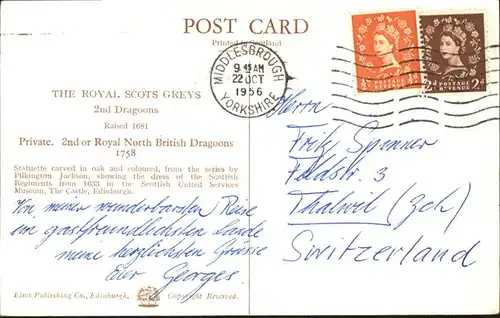 POST CARD
Printed in Scotland
MIDDLESBROUGH
9 45 AM
22 OCT
1956
YORKSHIRE
½d POSTAGE REVENUE ½d
2d POSTAGE REVENUE 2d
THE ROYAL SCOTS GREYS
2nd Dragoons
Raised 1681
Private. 2nd or Royal North British Dragoons
1758
Statuette carved in oak and coloured, from the series by
Pilkington Jackson, showing the dress of the Scottish
Regiments from 1633 in the Scottish United Services
Museum, The Castle, Edinburgh.
Von meiner wunderbarsten Reise
im gastfreundlichsten Lande
meine herzlichsten Grüsse
Euer Georges.
Herrn
Fritz Spenner
Feldstr. 3
Thalwil (Zch)
Switzerland
Elms Publishing Co., Edinburgh.
Copyright Reserved.